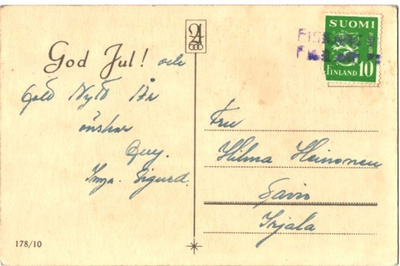 God Jul! och
Gott Nytt År
önskar
Inga. Sigurd.
178/10
SUOMI
FINLAND 10
Fru
Hilma Heinonen
Irjala